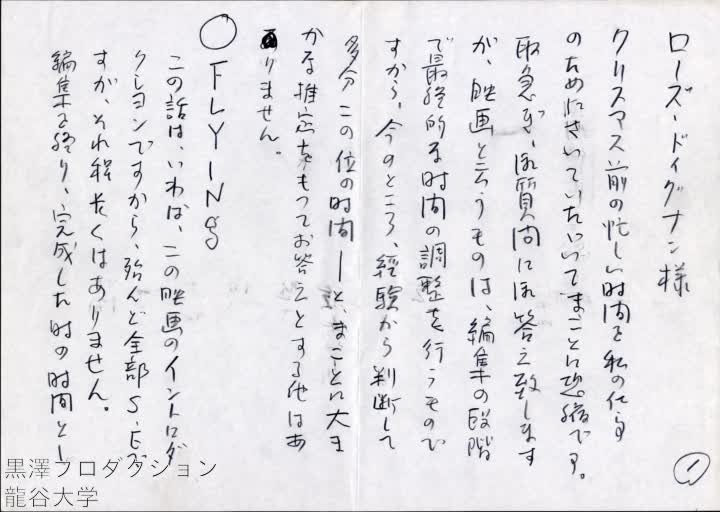 ローズ・ドイグナン様
クリスマス前の忙しい時間を私の仕事
のためにさいていたゞいてまことに恐縮です。
取急ぎ、御質問に御答え致します
が、映画と云うものは、編集の段階
で最終的な時間の調整を行うもので
すから、今のところ、経験から判断して
多分この位の時間―と、まことに大ま
かな推定をもってお答えとする他はあ
りません。
○FLYING
この話は、いわば、この映画のイントロダ
クションですから、殆んど全部S・Eで
すが、それ程長くはありません。
編集を終り、完成した時の時間とし
①
黒澤プロダクション
龍谷大学